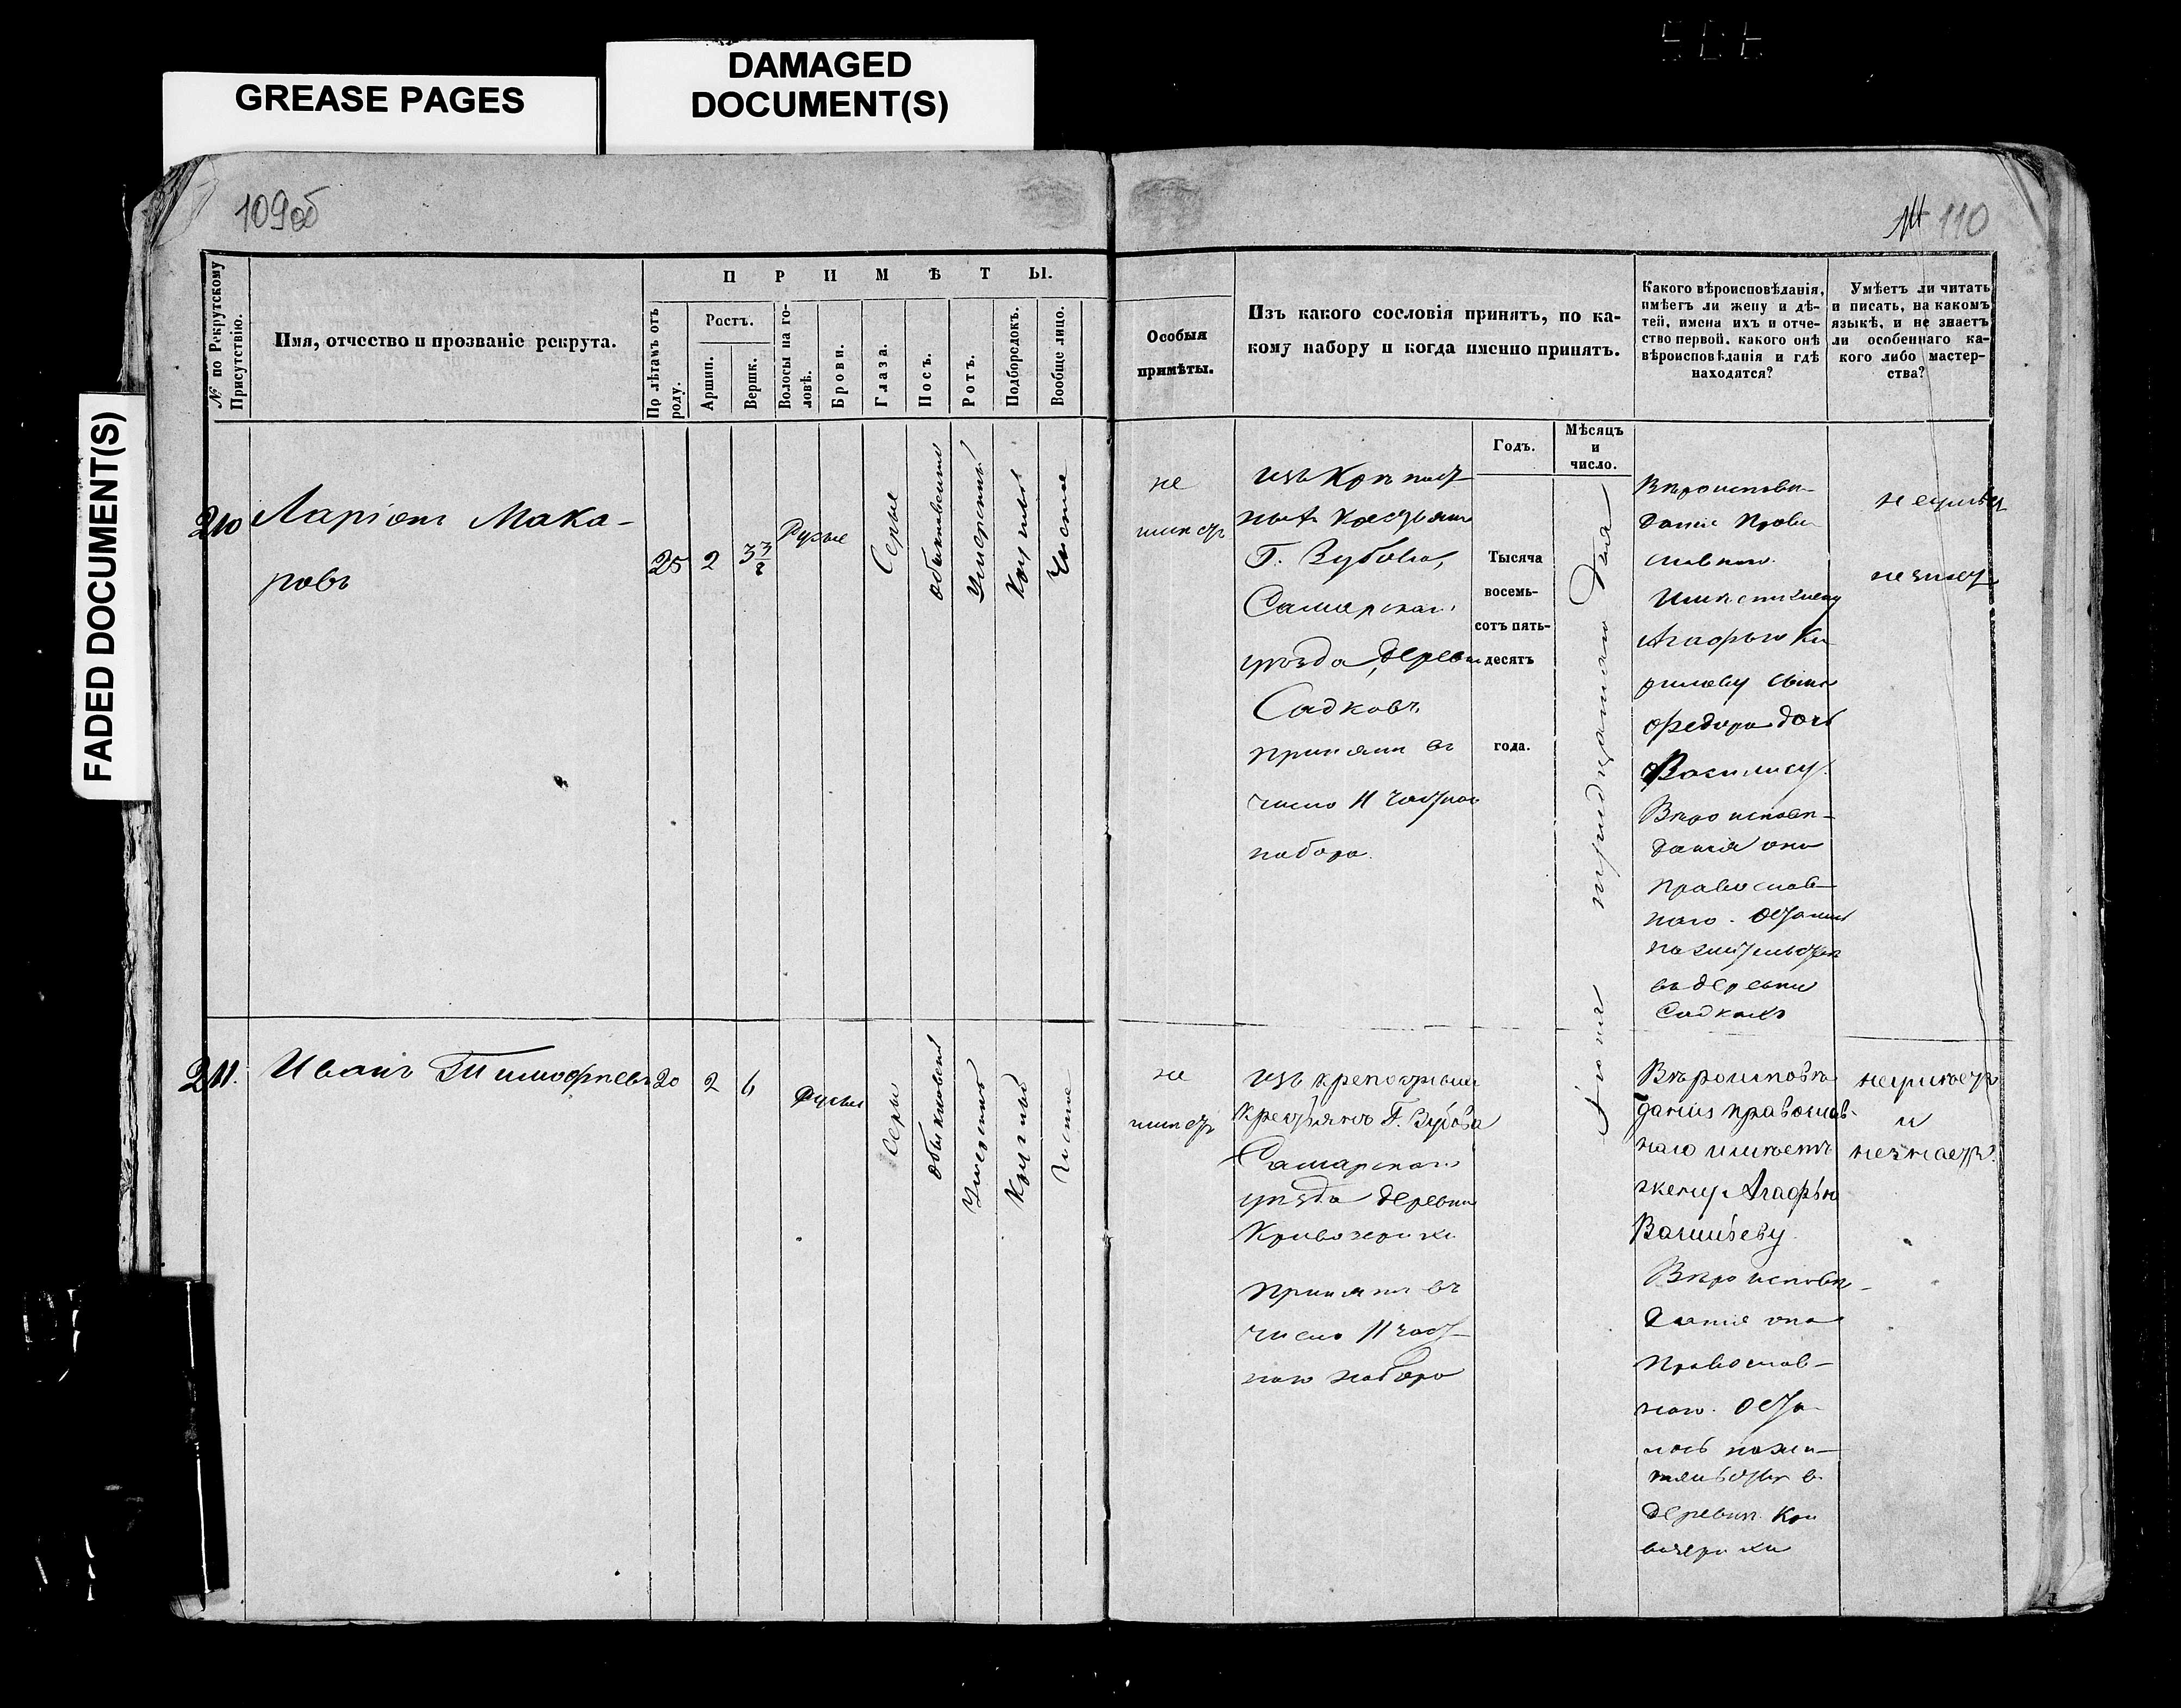 GREASE PAGES
DAMAGED
DOCUMENT(S)
FADED DOCUMENT(S)
109об
110
№ по Рекрутскому Присутствію.
Имя, отчество и прозваніе рекрута.
ПРИМѢТЫ.
По лѣтамъ отъ роду.
Ростъ.
Аршин.
Вершк.
Волосы на головѣ.
Брови.
Глаза.
Носъ.
Ротъ.
Подбородокъ.
Вообще лицо.
Особыя
примѣты.
Изъ какого сословія принятъ, по ка-
кому набору и когда именно принятъ.
Какого вѣроисповѣданія,
имѣетъ ли жену и дѣ-
тей, имена ихъ и отче-
ство первой, какого онѣ
вѣроисповѣданія и гдѣ
находятся?
Умѣетъ ли читать
и писать, на какомъ
языкѣ, и не знаетъ
ли особеннаго ка-
кого либо мастер-
ства?
Годъ.
Мѣсяцъ
и
число.
210
Ларіонъ Мака-
ровъ
25
2
3 3/8
Русые
Серые
обыкновенный
Умеренный
Круглый
Чистое
не
имеетъ
изъ Крѣпост
ныхъ крестьянъ
Г. Зубова,
Самарскаго
уѣзда, Деревни
Садковъ
принятъ въ
число II частнаго
набора.
Тысяча
восемь-
сотъ пять-
десятъ
года.
Іюня тридцатаго дня
Вѣроисповѣ-
данія Право
славнаго.
Имѣетъ жену
Агафью Ки
рилову сына
Федора дочь
Василису.
Вѣро исповѣ-
данія они
православ-
наго. Остались
на жительствѣ
въ деревни
Садкахъ
не умѣетъ
не знаетъ
211.
Иванъ Тимофѣевъ
20
2
6
русые
серы
обыкновенный
Умеренный
Круглый
Чистое
не
имѣетъ
изъ крепостныхъ
крестьянъ Г. Зубова
Самарскаго
уѣзда деревни
принятъ въ
число II част-
наго набора
Вѣроисповѣ
данія православ-
наго имѣетъ
жену Агафью
Васильеву.
Вѣро исповѣ-
данія она
Православ-
наго. Оста-
лась на жи-
тельствѣ в
деревни Кри
не умѣетъ
и
не знаетъ.